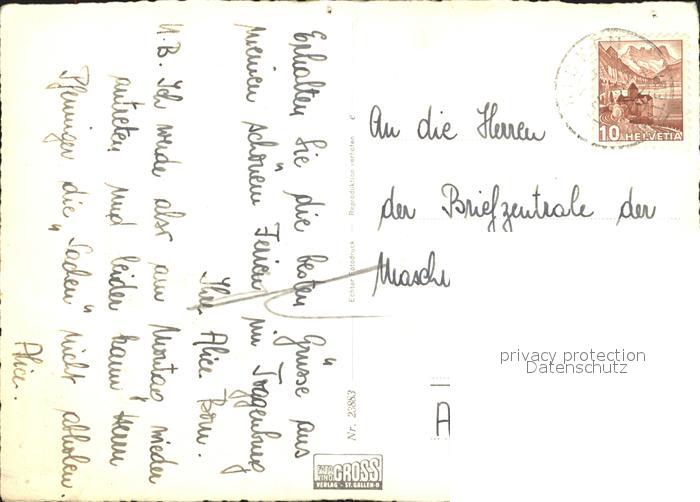 Erhalten Sie die besten Grüsse aus
meinen schönen Ferien im Toggenburg
Ihre Alice Born.
N.B. Ich werde also am Montag wieder
antreten und leider kann Herrn
Pfenninger die "Sachen" nicht abholen.
Alice.
Echter Fotodruck — Reproduktion verboten c
Nr. 23883
FOTO GROSS
VERLAG - ST. GALLEN-O
10 HELVETIA
An die Herren
der Briefzentrale der
Maschi
A
privacy protection
Datenschutz